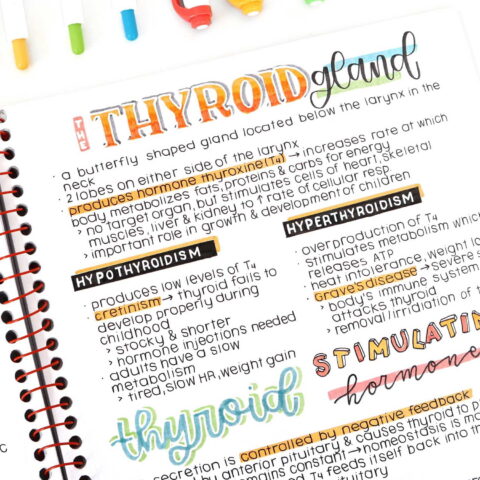 THE THYROID gland
· a butterfly shaped gland located below the larynx in the
neck
· 2 lobes on either side of the larynx
· produces hormone thyroxine (T4) → increases rate at which
body metabolizes fats, proteins & carbs for energy
> no target organ, but stimulates cells of heart, skeletal
muscles, liver & kidney to ↑ rate of cellular resp.
> important role in growth & development of children
HYPOTHYROIDISM
· produces low levels of T4
· cretinism → thyroid fails to
develop properly during
childhood
> stocky & shorter
> hormone injections needed
· adults have a slow
metabolism
> tired, slow HR, weight gain
HYPERTHYROIDISM
· overproduction of T4
· stimulates metabolism which
releases ATP
· heat intolerance, weight
· grave's disease → severe
> body's immune system
attacks thyroid
> removal/irradiation of
thyroid
STIMULATIN
hormone
secretion is controlled by negative feedback
by anterior pituitary & causes thyroid to
remains constant → homeostasis is
T4 feeds itself back into
pituitary